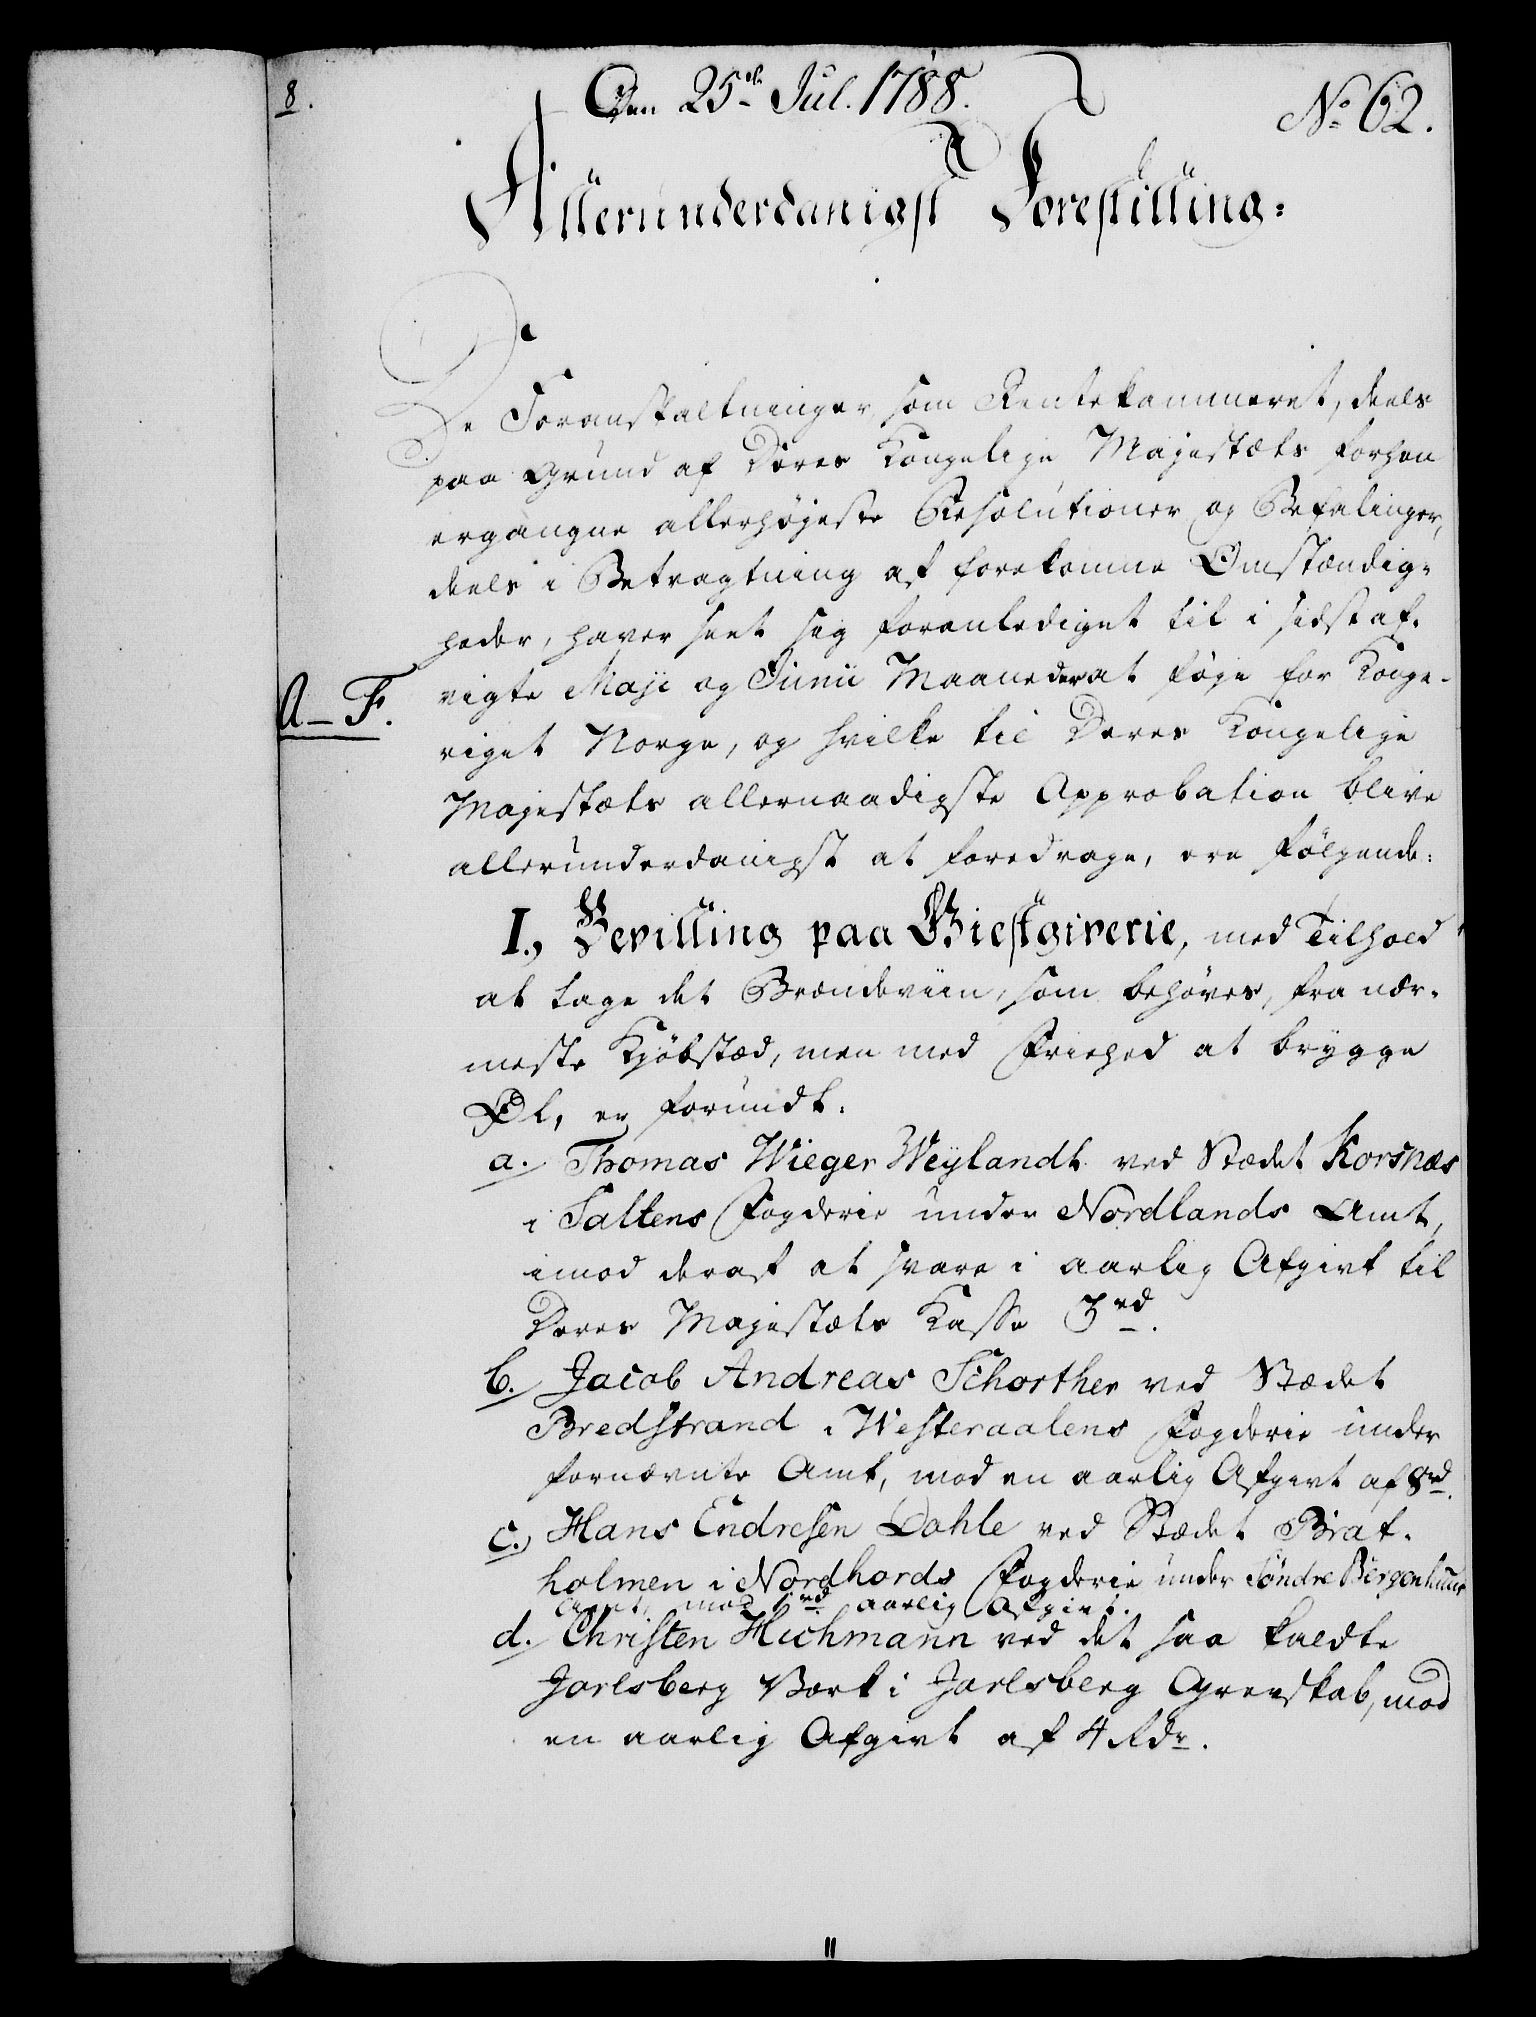 8.
Den 25de Jul. 1788.
No 62.
Allerunderdanigst Forestilling.
De Foranstaltninger som Rentekammeret, deels
paa Grund af Deres Kongelige Majestæts forhen
ergangne allerhøjeste Resolutioner og Befalinger,
deels i Betragtning af forekomne Omstændig-
heder, haver seet sig foranlediget til i sidst af-
vigte Maji og Junii Maaneder at føje for Konge-
A-F.
riget Norge, og hvilke til Deres Kongelige
Majestæts allernaadigste Approbation blive
allerunderdanigst at foredrage, ere følgende:
I., Bevilling paa Giestgiverie, med Tilhold
at tage det Brændeviin, som behøves, fra nær-
meste Kjøbstæd, men med Friehed at brygge
Øl, er forundt.
a. Thomas Wieger Weylandt ved Stædet Korsnæs
i Saltens Fogderie under Nordlands Amt,
imod deraf at svare i aarlig Afgivt til
Deres Majestæts Kasse 3rd.
b. Jacob Andreas Schorther ved Stædet
Bredstrand i Westeraalens Fogderie under
fornævnte Amt, mod en aarlig Afgivt af 8rd.
c. Hans Endresen Dahle ved Stædet Brat-
holmen i Nordhords Fogderie under Søndre Bergenhuus
Amt, mod rd aarlig Afgivt.
d. Christen Hichmann ved det saa kaldte
Jarlsberg Værk i Jarlsberg Grevskab, mod
en aarlig Afgivt af 4 Rdr.